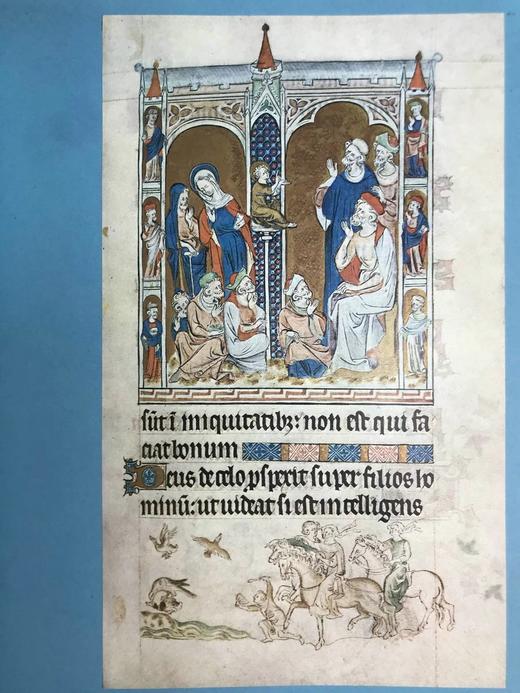 sūt ī iniquitatibꝫ: non est qui fa
ciat bonum
Deus de celo ꝓsperit super filios ho
minū: ut uideat si est intelligens